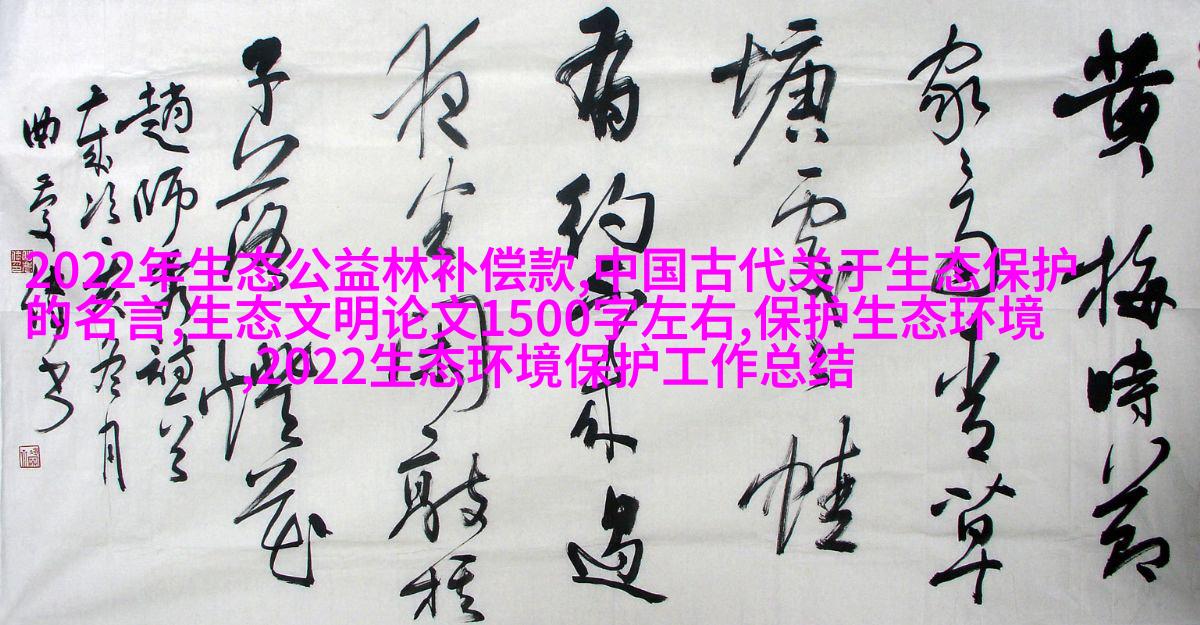 2022年生态公益林补偿款,中国古代关于生态保护
的名言,生态文明论文1500字左右,保护生态环境
,2022生态环境保护工作总结
黄梅時節
家々雨青草
塘處々蛙
有約不来過
夜半閑敲棋
子落燈花
趙師秀詩